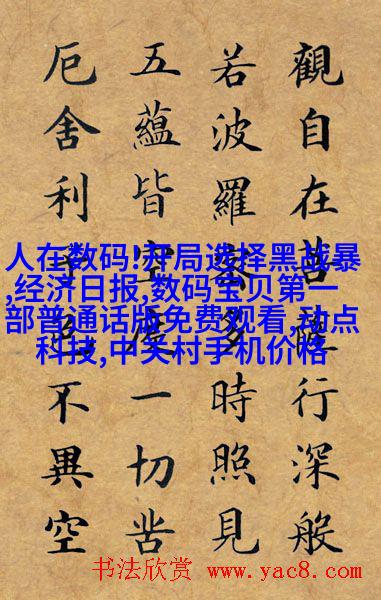 觀自在菩薩行深般
若波羅蜜多時照見
五蘊皆空度一切苦
厄舍利子色不異空
人在数码!开局选择黑战暴
,经济日报,数码宝贝第一
部普通话版免费观看,动点
科技,中关村手机价格
书法欣赏 www.yac8.com